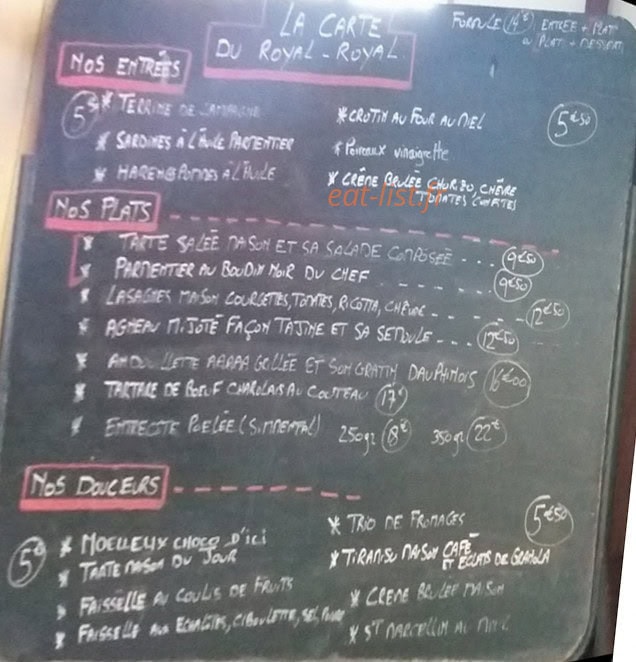 LA CARTE
DU ROYAL-ROYAL
FORMULE 14€ ENTRÉE + PLAT
PLAT + DESSERT
NOS ENTRÉES
* TERRINE DE
* SARDINES À L'HUILE PARMENTIER
* HARENGS POMMES À L'HUILE
* CROTIN AU FOUR AU MIEL
5€50
* Poireaux vinaigrette
* CRÈME BRULÉE CHORIZO, CHÈVRE
TOMATES CONFITES
eat-list.fr
NOS PLATS
* TARTE SALÉE MAISON ET SA SALADE COMPOSÉE ... 9€50
* PARMENTIER AU BOUDIN NOIR DU CHEF 9€50
* LASAGNES MAISON COURGETTES, TOMATES, RICOTTA, CHÈVRE 12€50
* AGNEAU MIJOTÉ FAÇON TAJINE ET SA SEMOULE 12€50
* ANDOUILLETTE AAAAA GRILLÉE ET SON GRATIN DAUPHINOIS 16€00
* TARTARE DE BOEUF CHAROLAIS AU COUTEAU 17€
* ENTRECOTE POELÉE (SIMMENTAL) 250gr 18€ 350gr 22€
NOS DOUCEURS
5€
* MOELLEUX CHOCO D'ICI
* TARTE MAISON DU JOUR
* FAISSELLE AU COULIS DE FRUITS
* FAISSELLE AUX ECHALOTES, CIBOULETTE, SEL, POIVRE
* TRIO DE FROMAGES
5€50
* TIRAMISU MAISON CAFÉ
ET ECLATS DE GRANOLA
* CREME BRULEE MAISON
* ST MARCELLIN AU MIEL